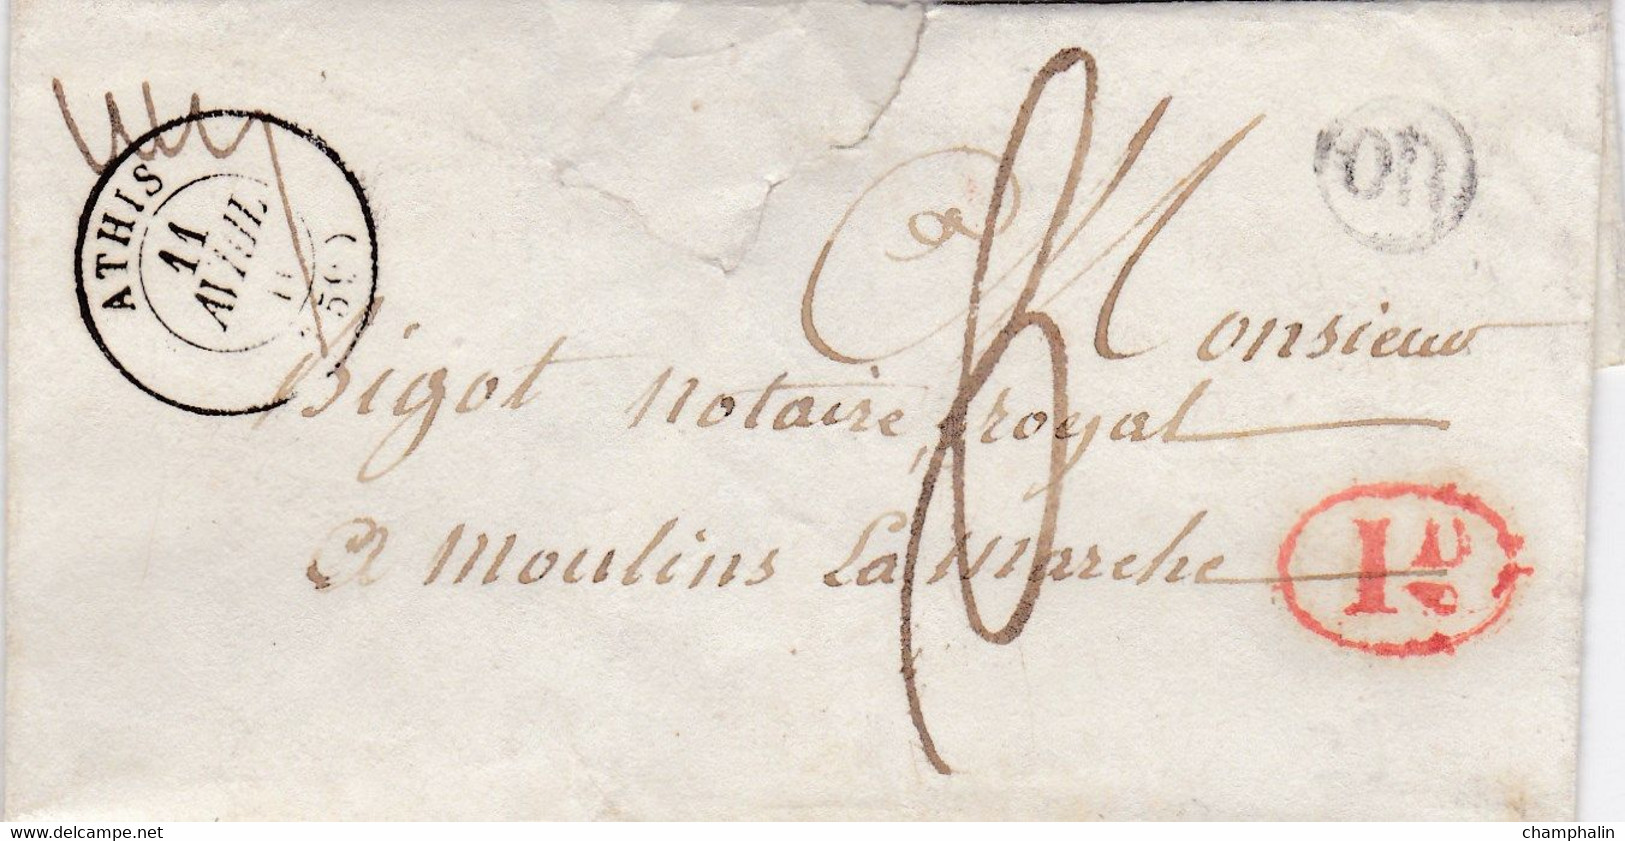 ATHIS
11
AVRIL
(59)
OR
Monsieur
Bigot notaire royal
a moulins La marche
1D
www.delcampe.net
champhalin